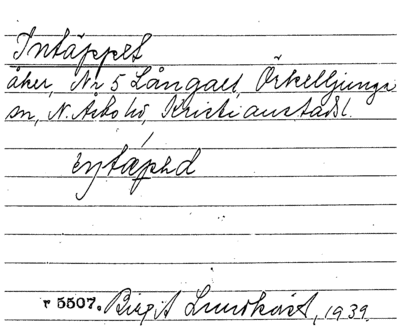 Intäppet
åker, Nr 5 Långalt, Örkelljunga
sn, N. Åsbo hd, Kristianstads l.
r 5507. Birgit Lundkvist, 1939.